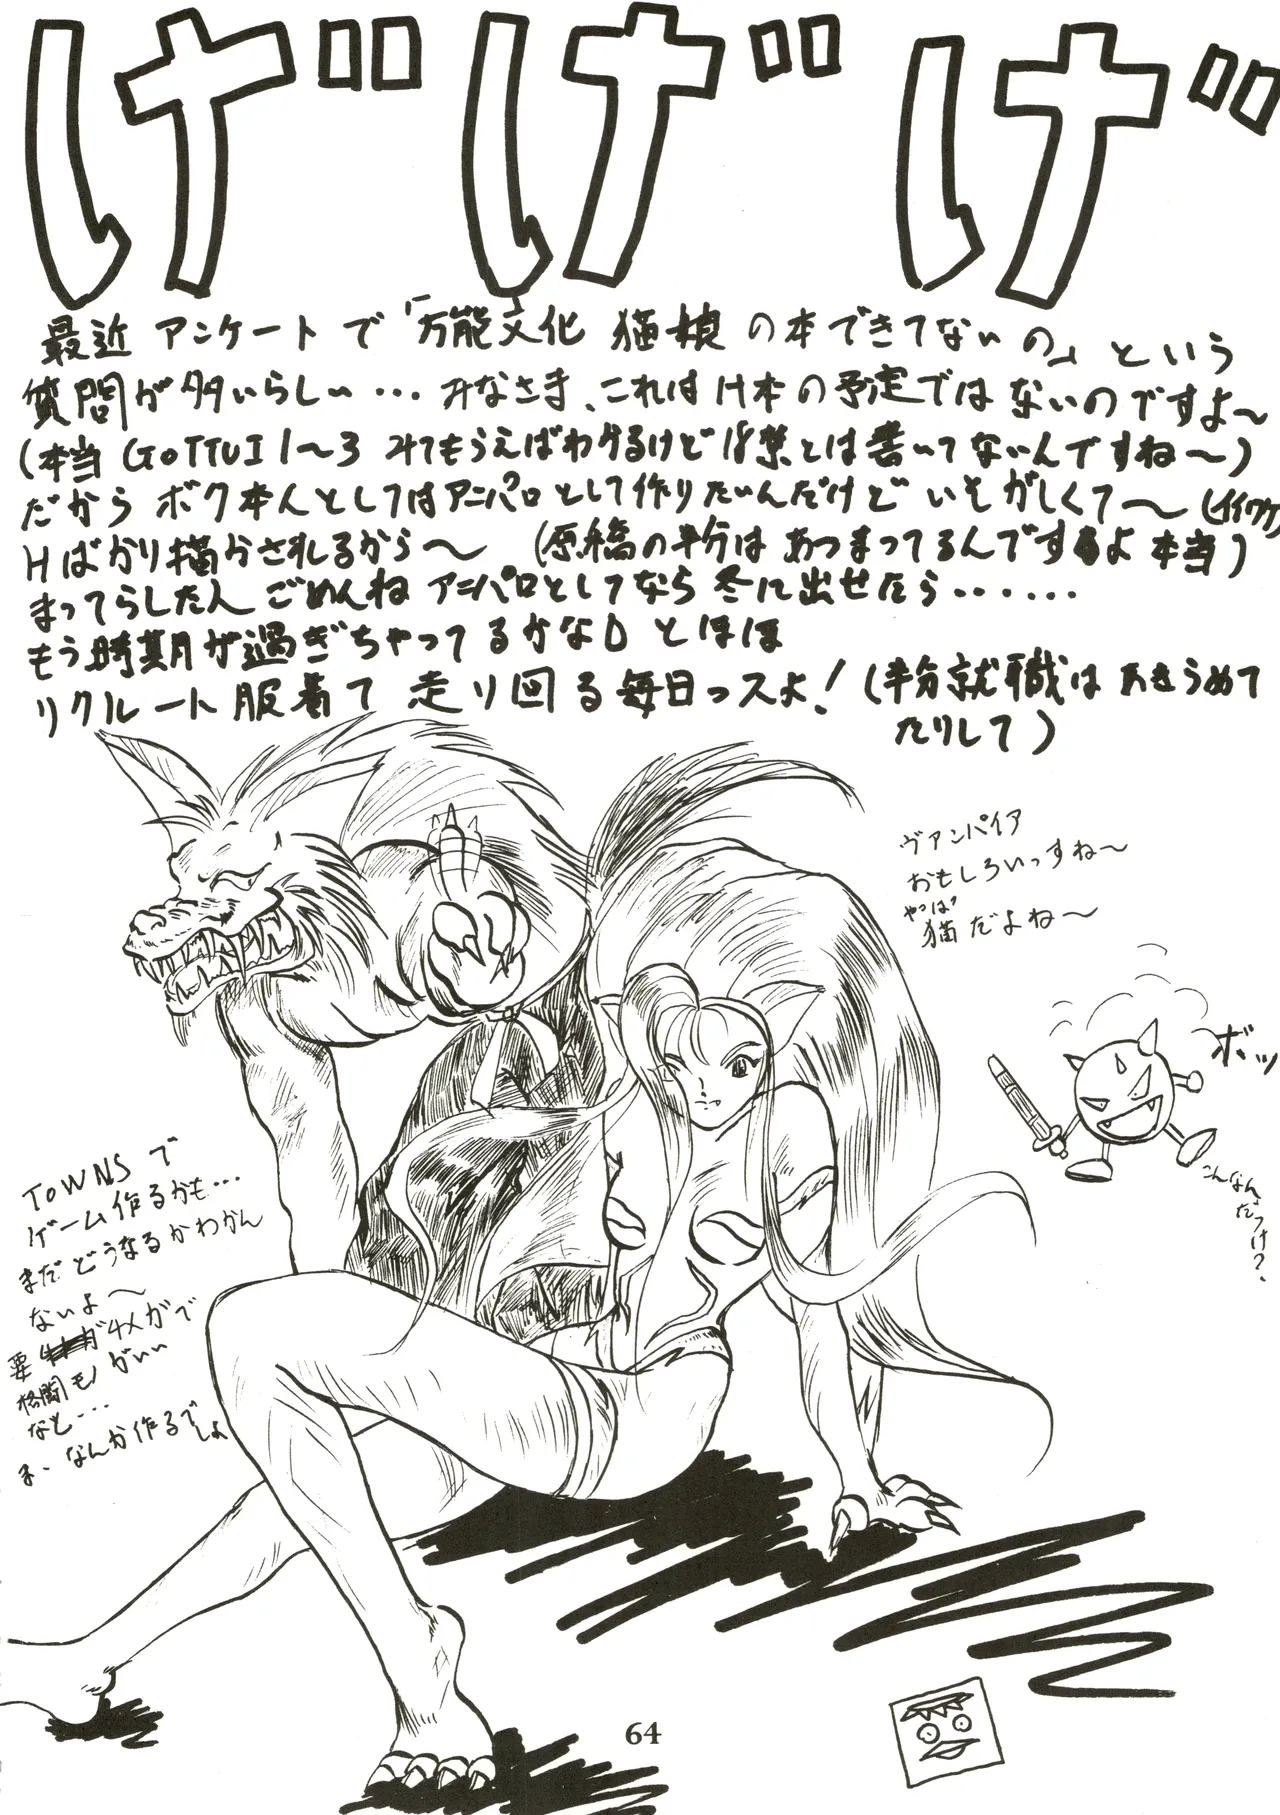 げげげ
最近 アンケートで「万能文化 猫娘の本できてないの」という
質問が多いらしい…みなさま、これはH本の予定ではないのですよ〜
(本当 GOTTUI 1〜3 みてもらえばわかるけど 18禁とは書いてないんですね〜)
だから ボク本人としてはアニパロとして作りたいんだけど いそがしくて〜(イイワケ)
Hばかり描かされるから〜 (原稿の半分は あつまってるんですよ 本当)
まってらした人 ごめんね アニパロとしてなら 冬に出せたら……
もう時期が過ぎちゃってるかな とほほ
リクルート服着て 走り回る毎日っスよ! (半分就職は あきらめて
たりして)
ヴァンパイア
おもしろいっすね〜
やっぱ
猫だよね〜
ボッ
こんなんだっけ?
TOWNSで
ゲーム作るかも…
まだどうなるかわかん
ないよ〜
4メガで
格闘モノがいい
なと…
ま、なんか作るでしょ
64